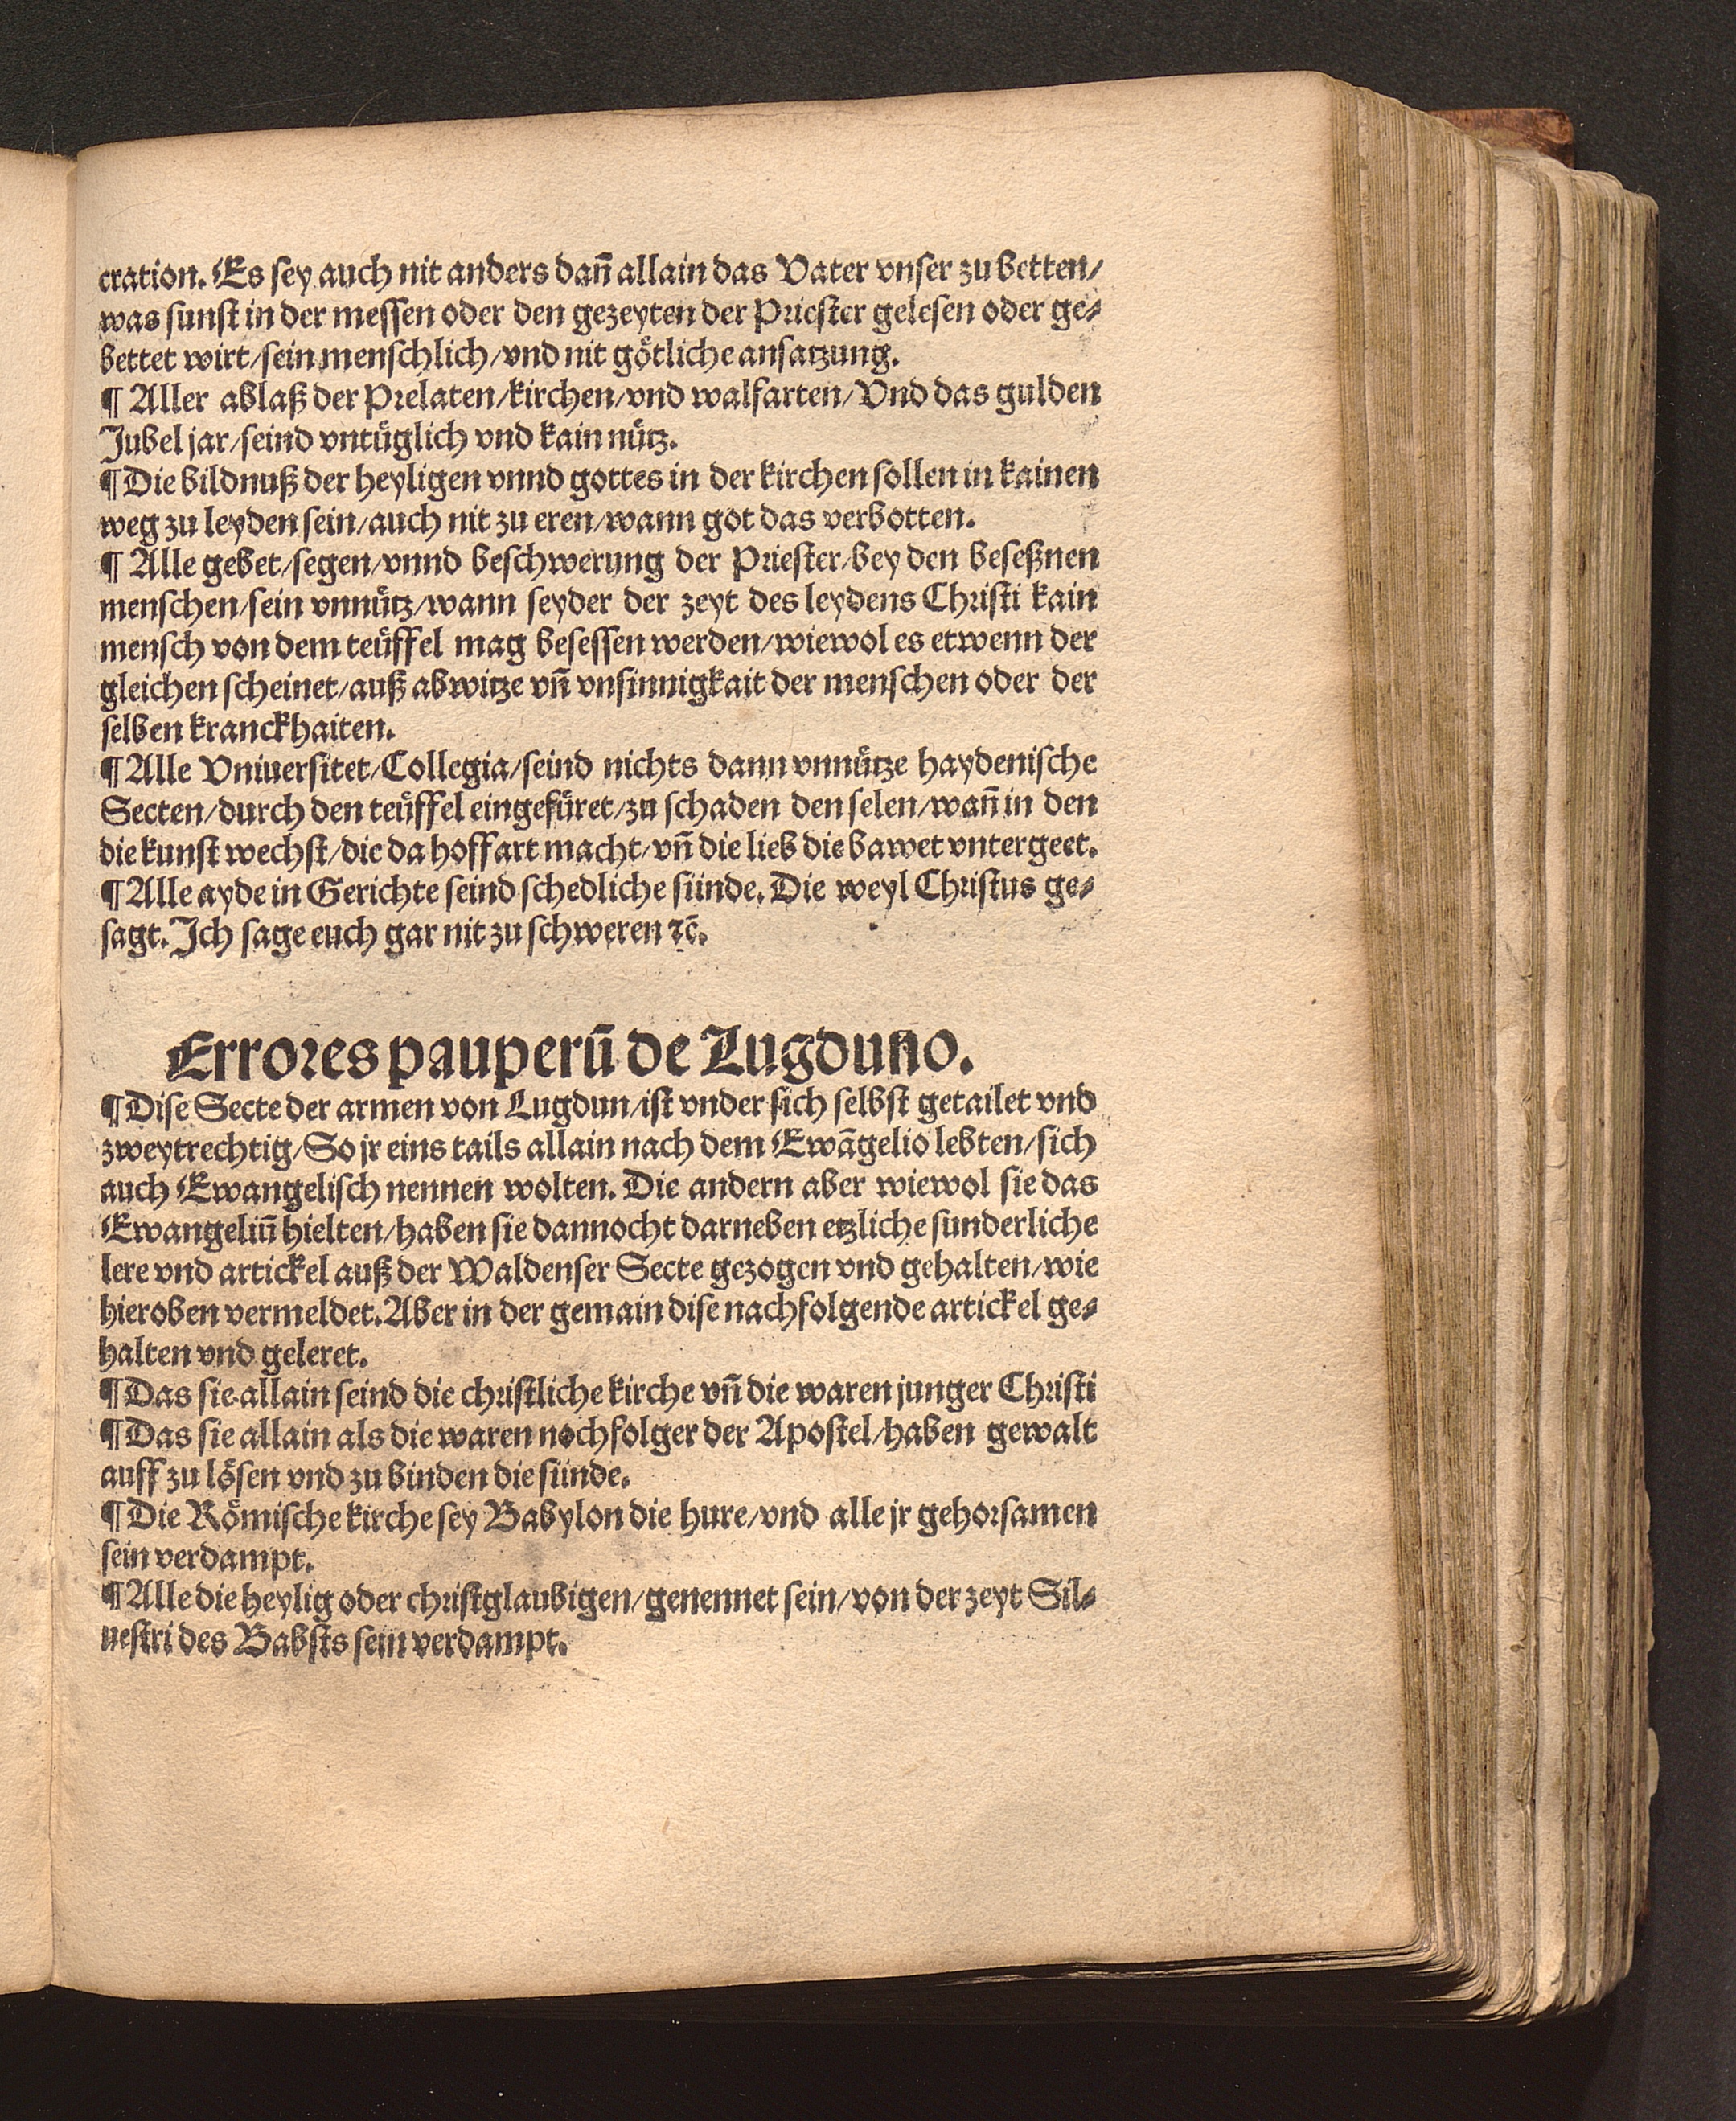 cration. Es sey auch nit anders dañ allain das Vater vnser zu betten/
was sunst in der messen oder den gezeyten der Priester gelesen oder ge⸗
bettet wirt/sein menschlich/vnd nit goͤtliche ansatzung.
¶ Aller ablaß der Prelaten/kirchen/vnd walfarten/Vnd das gulden
Jubel jar/seind vntuͤglich vnd kain nuͤtz.
¶ Die bildnuß der heyligen vnnd gottes in der kirchen sollen in kainen
weg zu leyden sein/auch nit zu eren/wann got das verbotten.
¶ Alle gebet/segen/vnnd beschwerung der Priester/bey den beseßnen
menschen/sein vnnuͤtz/wann seyder der zeyt des leydens Christi kain
mensch von dem teuͤffel mag besessen werden/wiewol es etwenn der
gleichen scheinet/auß abwitze vñ vnsinnigkait der menschen oder der
selben kranckhaiten.
¶ Alle Vniuersitet/Collegia/seind nichts dann vnnuͤtze haydenische
Secten/durch den teuͤffel eingefuͤret/zu schaden den selen/wañ in den
die kunst wechst/die da hoffart macht/vñ die lieb die bawet vntergeet.
¶ Alle ayde in Gerichte seind schedliche sünde. Die weyl Christus ge⸗
sagt. Ich sage euch gar nit zu schweren ꝛc̄.
Errores pauperū de Lugduno.
¶ Dise Secte der armen von Lugdun/ist vnder sich selbst getailet vnd
zweytrechtig/So jr eins tails allain nach dem Ewāgelio lebten/sich
auch Ewangelisch nennen wolten. Die andern aber wiewol sie das
Ewangeliū hielten/haben sie dannocht darneben etzliche sunderliche
lere vnd artickel auß der Waldenser Secte gezogen vnd gehalten/wie
hieroben vermeldet. Aber in der gemain dise nachfolgende artickel ge⸗
halten vnd geleret.
¶ Das sie allain seind die christliche kirche vñ die waren junger Christi
¶ Das sie allain als die waren nochfolger der Apostel/haben gewalt
auff zu loͤsen vnd zu binden die sünde.
¶ Die Roͤmische kirche sey Babylon die hure/vnd alle jr gehorsamen
sein verdampt.
¶ Alle die heylig oder christglaubigen/genennet sein/von der zeyt Sil⸗
uestri des Babsts sein verdampt.